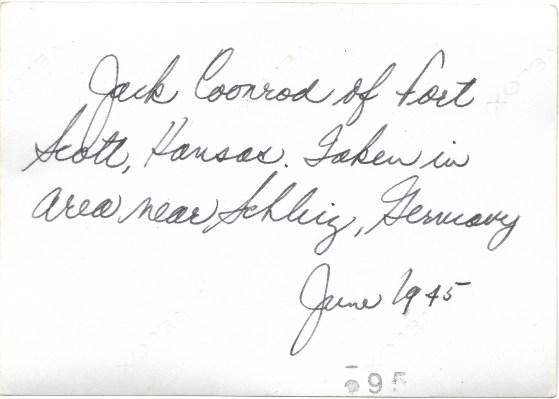 Jack Coonrod of Fort
Scott, Kansas. Taken in
area near Schleiz, Germany
June 1945
95